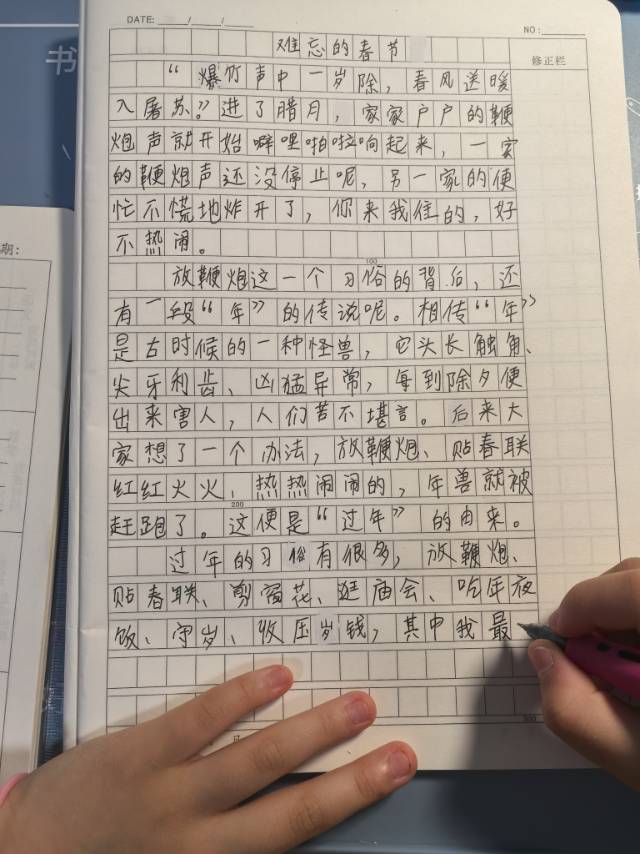 DATE: / /
NO:
修正栏
书
期:
难忘的春节
“爆竹声中一岁除，春风送暖
入屠苏。”进了腊月，家家户户的鞭
炮声就开始噼哩啪啦响起来，一家
的鞭炮声还没停止呢，另一家的便
忙不慌地炸开了，你来我住的，好
不热闹。
100
放鞭炮这一个习俗的背后，还
有一段“年”的传说呢。相传“年”
是古时候的一种怪兽，它头长触角、
尖牙利齿、凶猛异常，每到除夕便
出来害人，人们苦不堪言。后来大
家想了一个办法，放鞭炮、贴春联
红红火火、热热闹闹的，年兽就被
200
赶跑了。这便是“过年”的由来。
过年的习俗有很多，放鞭炮、
贴春联、剪窗花、逛庙会、吃年夜
饭、守岁、收压岁钱，其中我最
300